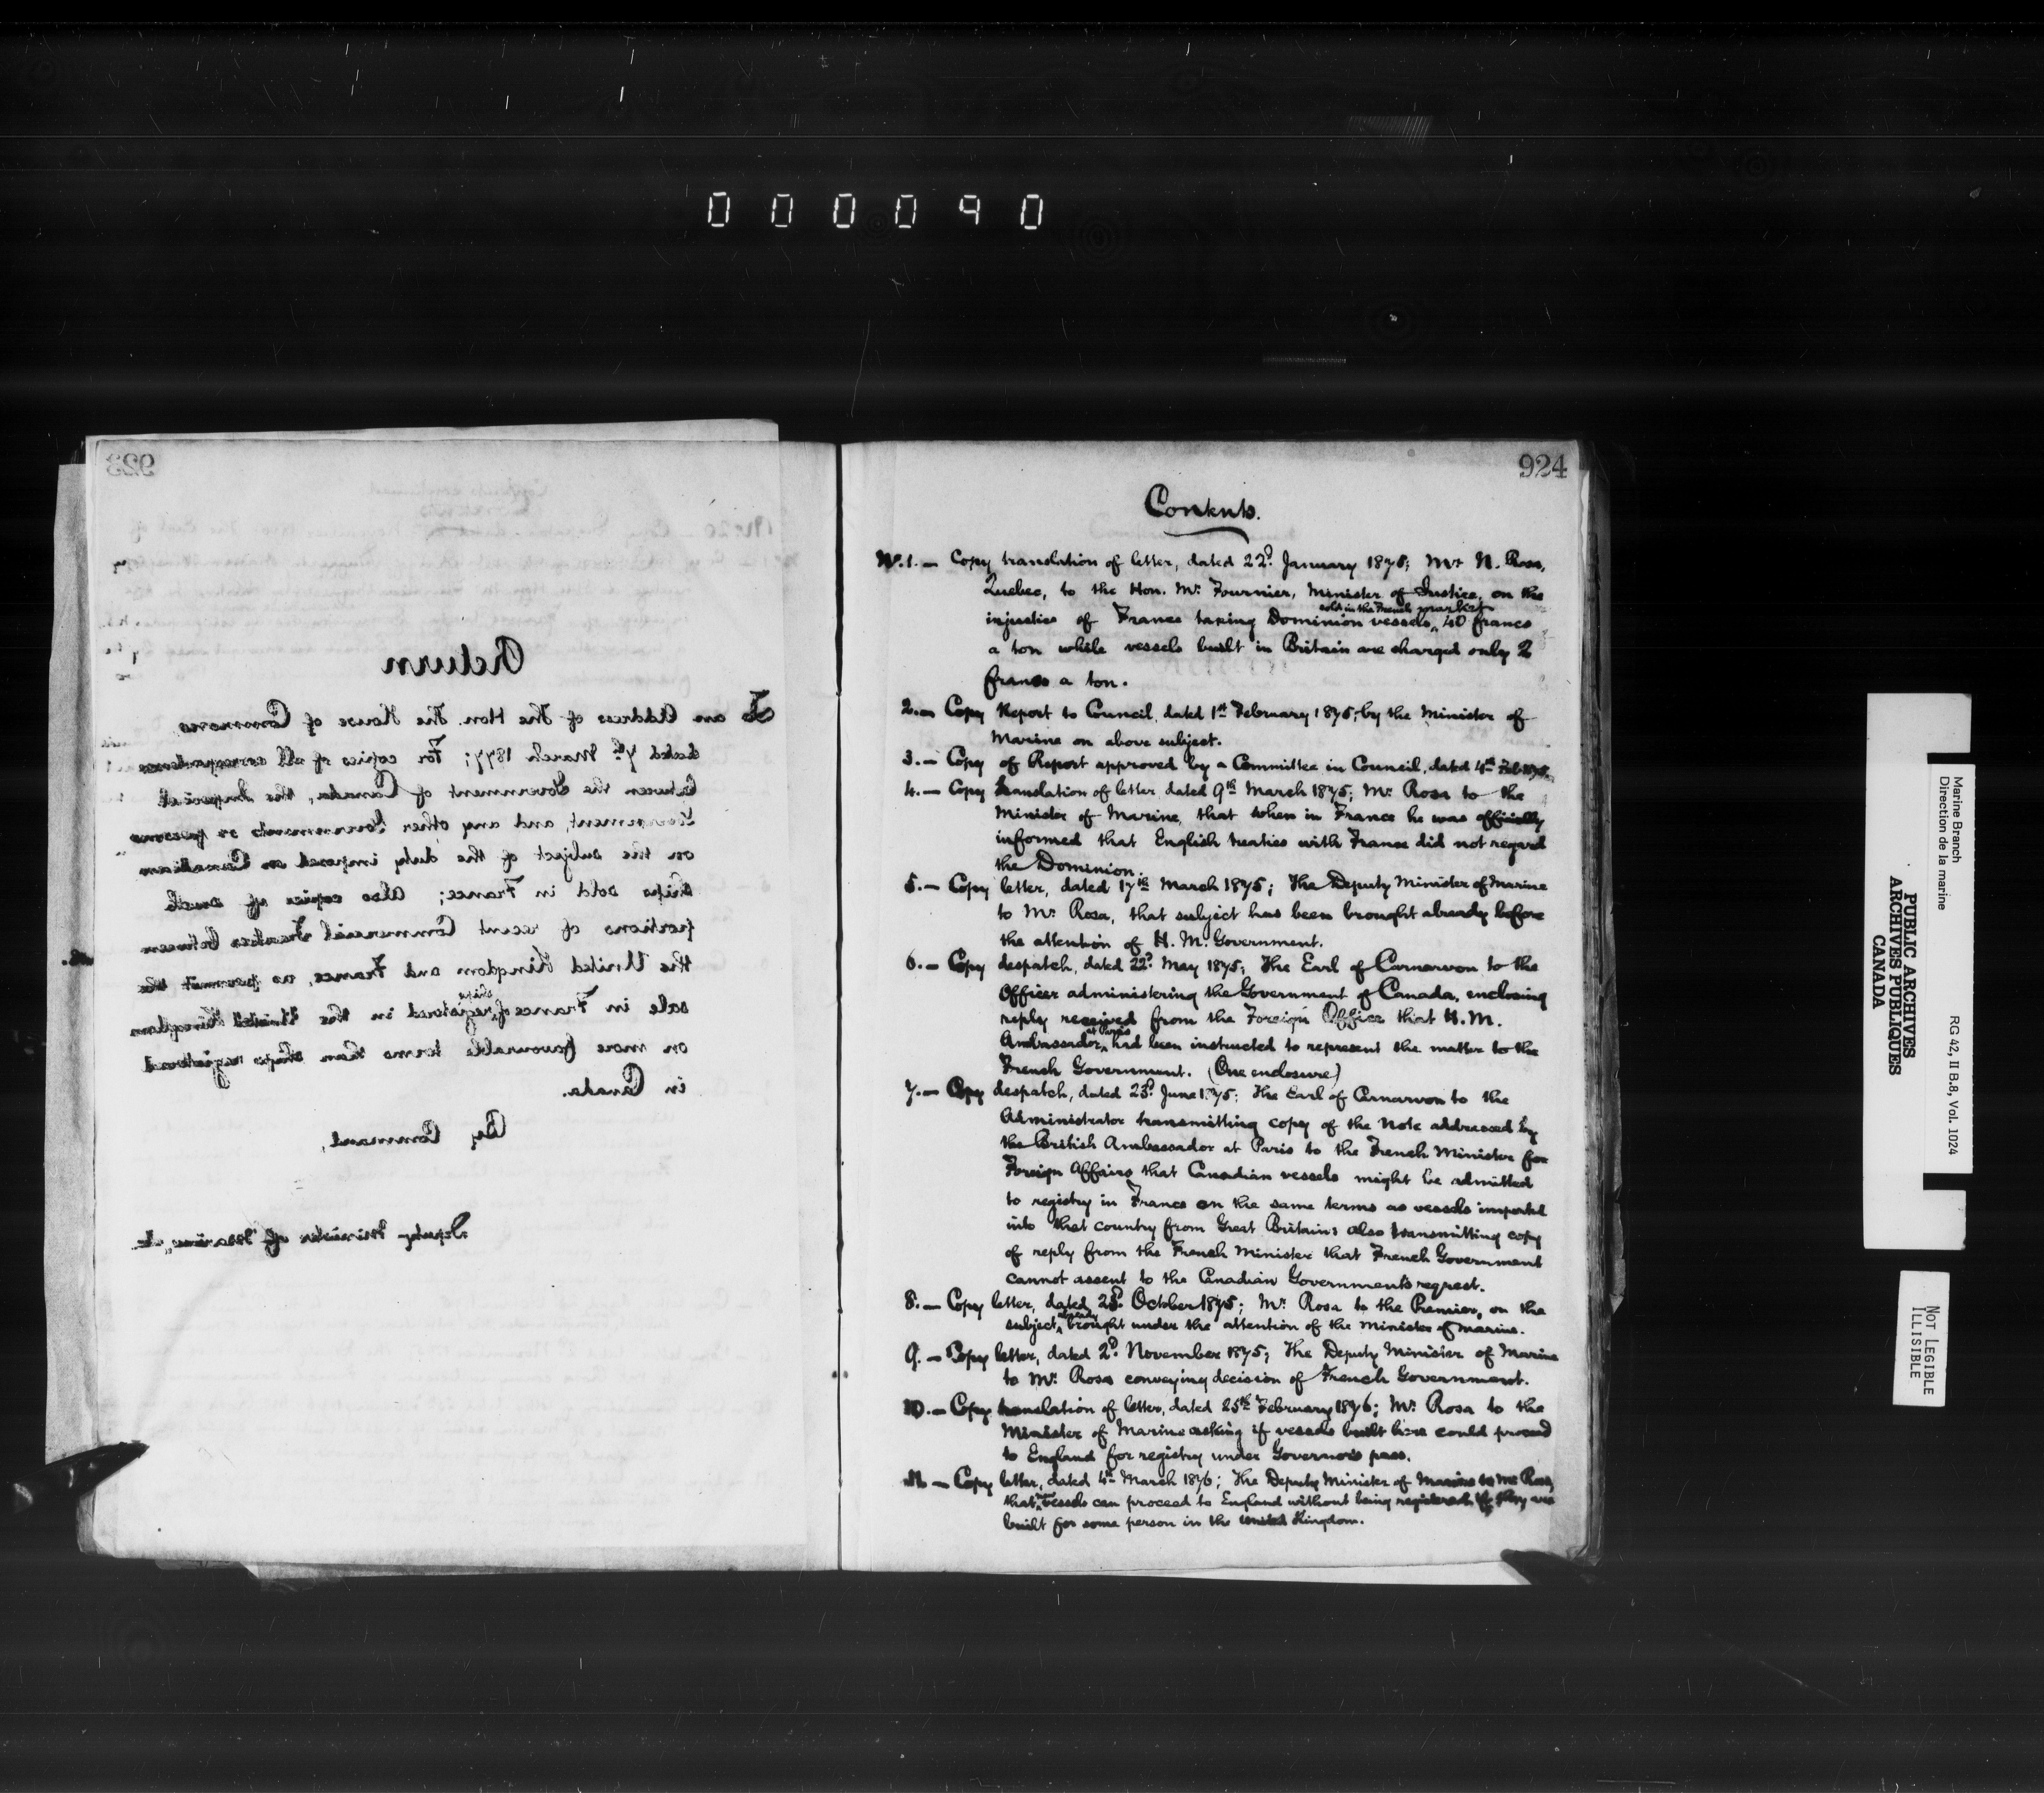 000090
923
Return
To an Address of The Hon. The House of Commons
dated 7th March 1877; For copies of all correspondence
between the Government of Canada, the Imperial
Government, and any other Governments or persons
on the subject of the duty imposed on Canadian
ships sold in France; Also copies of such
portions of recent Commercial Treaties between
the United Kingdom and France, as permit the
sale in France of ships registered in the United Kingdom
on more favourable terms than ships registered
in Canada.
By Command,
Deputy Minister of Marine &c
924
Contents.
No. 1. — Copy translation of letter, dated 22d January 1875; Mr N. Rosa,
Quebec, to the Hon. Mr. Fournier, Minister of Justice, on the
injustice of France taxing Dominion vessels sold in the French market 40 francs
a ton while vessels built in Britain are charged only 2
francs a ton.
2. — Copy Report to Council, dated 1st February 1875, by the Minister of
Marine on above subject.
3. — Copy of Report approved by a Committee in Council, dated 4th Feb 1875.
4. — Copy translation of letter, dated 9th March 1875; Mr. Rosa to the
Minister of Marine, that when in France he was officially
informed that English treaties with France did not regard
the Dominion.
5. — Copy letter, dated 17th March 1875; The Deputy Minister of Marine
to Mr. Rosa, that subject has been brought already before
the attention of H. M. Government.
6. — Copy despatch, dated 22d. May 1875; The Earl of Carnarvon to the
Officer administering the Government of Canada, enclosing
reply received from the Foreign Office that H. M.
Ambassador at Paris had been instructed to represent the matter to the
French Government. (One enclosure)
7. — Copy despatch, dated 23d. June 1875; The Earl of Carnarvon to the
Administrator transmitting copy of the Note addressed by
the British Ambassador at Paris to the French Minister for
Foreign Affairs that Canadian vessels might be admitted
to registry in France on the same terms as vessels imported
into that country from Great Britain; also transmitting copy
of reply from the French Minister that French Government
cannot assent to the Canadian Government's request.
8. — Copy letter, dated 23d. October 1875; Mr. Rosa to the Premier, on the
subject, already brought under the attention of the Minister of Marine.
9. — Copy letter, dated 2d. November 1875; The Deputy Minister of Marine
to Mr. Rosa conveying decision of French Government.
10. — Copy translation of letter, dated 25th February 1876; Mr. Rosa to the
Minister of Marine asking if vessels built here could proceed
to England for registry under Governor's pass.
11. — Copy letter, dated 4th March 1876; The Deputy Minister of Marine to Mr Rosa,
that vessels can proceed to England without being registered, if they are
built for some person in the United Kingdom.
Marine Branch
Direction de la marine
RG 42, II B.8, Vol. 1024
PUBLIC ARCHIVES
ARCHIVES PUBLIQUES
CANADA
NOT LEGIBLE
ILLISIBLE